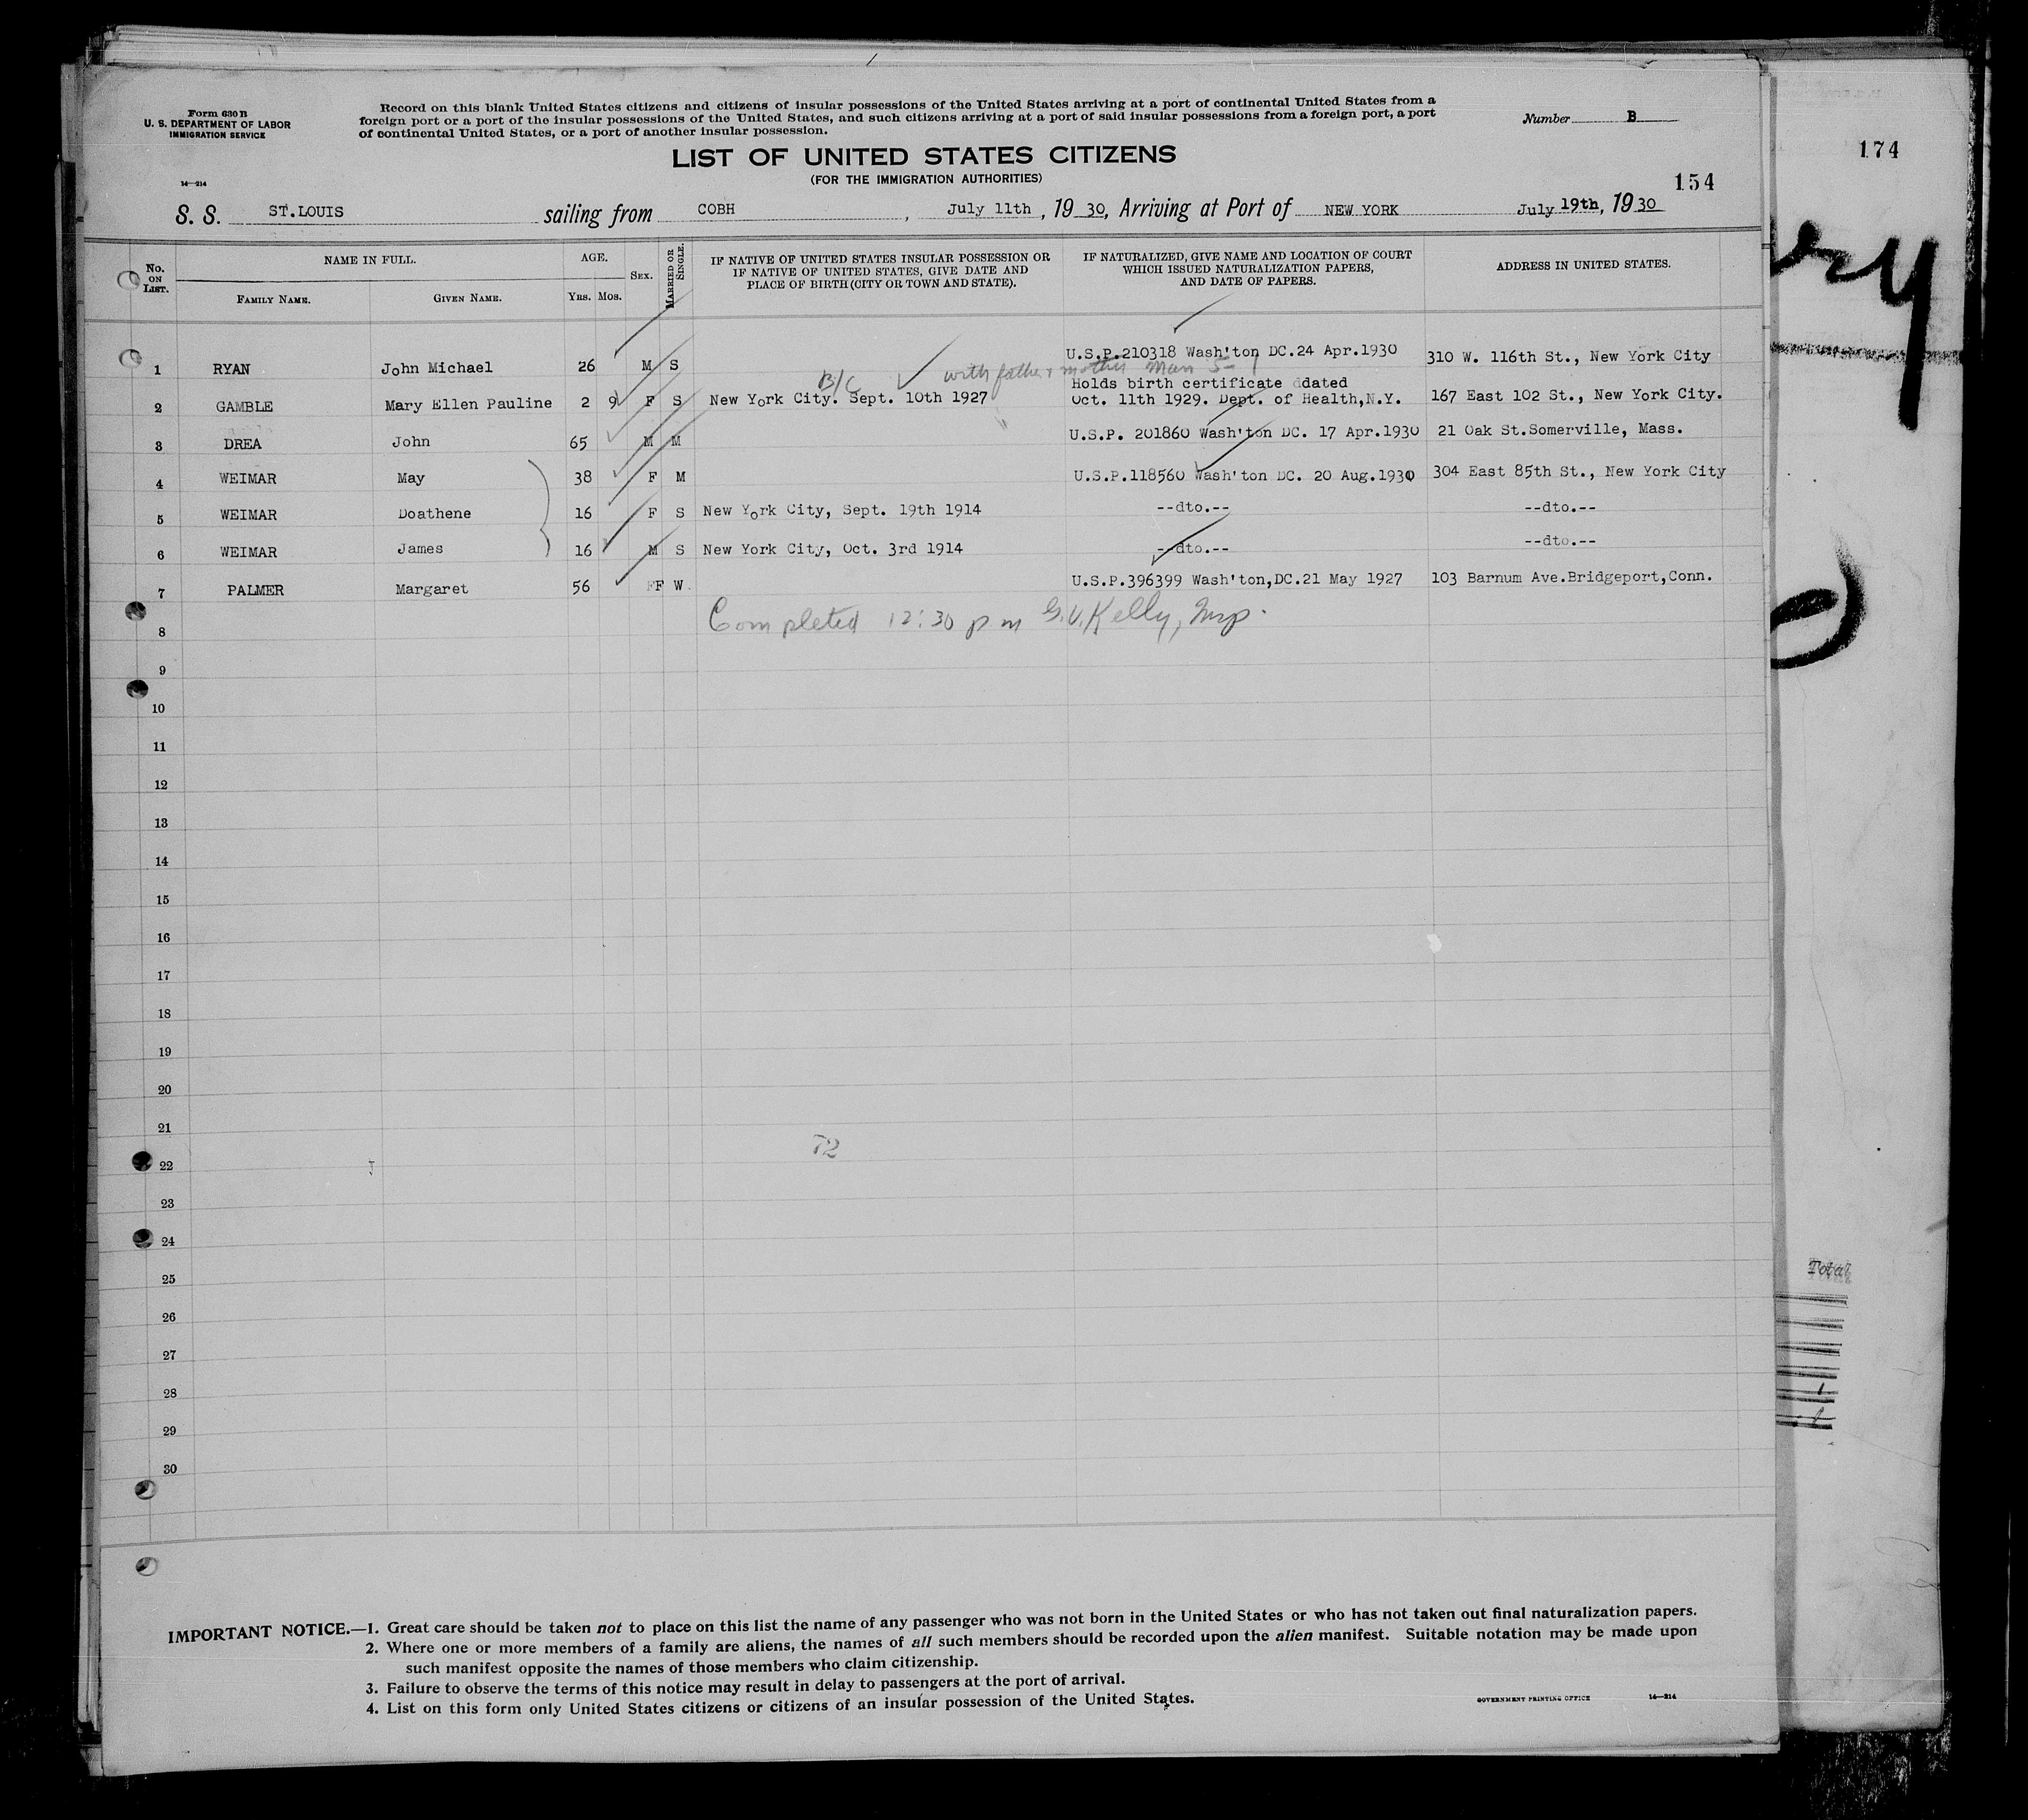 Form 630 B
U. S. DEPARTMENT OF LABOR
IMMIGRATION SERVICE
14—214
Record on this blank United States citizens and citizens of insular possessions of the United States arriving at a port of continental United States from a
foreign port or a port of the insular possessions of the United States, and such citizens arriving at a port of said insular possessions from a foreign port, a port
of continental United States, or a port of another insular possession.
Number B
174
LIST OF UNITED STATES CITIZENS
(FOR THE IMMIGRATION AUTHORITIES)
154
S. S. ST.LOUIS sailing from COBH, July 11th, 19 30, Arriving at Port of NEW YORK July 19th, 19 30
No. ON LIST. NAME IN FULL. FAMILY NAME. GIVEN NAME. AGE. YRS. MOS. SEX. MARRIED OR SINGLE. IF NATIVE OF UNITED STATES INSULAR POSSESSION OR IF NATIVE OF UNITED STATES, GIVE DATE AND PLACE OF BIRTH (CITY OR TOWN AND STATE). IF NATURALIZED, GIVE NAME AND LOCATION OF COURT WHICH ISSUED NATURALIZATION PAPERS, AND DATE OF PAPERS. ADDRESS IN UNITED STATES.
1 RYAN John Michael 26 M S U.S.P.210318 Wash'ton DC.24 Apr.1930 310 W. 116th St., New York City
B/C with father + mother Man 5-1
Holds birth certificate ddated
2 GAMBLE Mary Ellen Pauline 2 9 F S New York City. Sept. 10th 1927 Oct. 11th 1929. Dept. of Health,N.Y. 167 East 102 St., New York City.
3 DREA John 65 M M U.S.P. 201860 Wash'ton DC. 17 Apr.1930 21 Oak St.Somerville, Mass.
4 WEIMAR May 38 F M U.S.P.118560 Wash'ton DC. 20 Aug.1930 304 East 85th St., New York City
5 WEIMAR Doathene 16 F S New York City, Sept. 19th 1914 --dto.-- --dto.--
6 WEIMAR James 16 M S New York City, Oct. 3rd 1914 --dto.-- --dto.--
7 PALMER Margaret 56 FF W. U.S.P.396399 Wash'ton,DC.21 May 1927 103 Barnum Ave.Bridgeport,Conn.
Completed 12:30 pm G.V.Kelly, Insp.
8
9
10
11
12
13
14
15
16
17
18
19
20
21
72
22
23
24
Total
25
26
27
28
29
30
IMPORTANT NOTICE.—1. Great care should be taken not to place on this list the name of any passenger who was not born in the United States or who has not taken out final naturalization papers.
2. Where one or more members of a family are aliens, the names of all such members should be recorded upon the alien manifest. Suitable notation may be made upon
such manifest opposite the names of those members who claim citizenship.
3. Failure to observe the terms of this notice may result in delay to passengers at the port of arrival.
4. List on this form only United States citizens or citizens of an insular possession of the United States.
GOVERNMENT PRINTING OFFICE 14—214